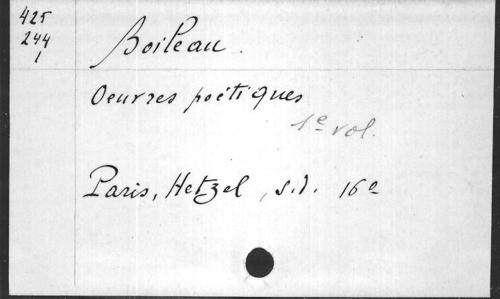 425
244
1
Boileau.
Oeuvres poétiques
1e vol.
Paris, Hetzel, s.d. 16o